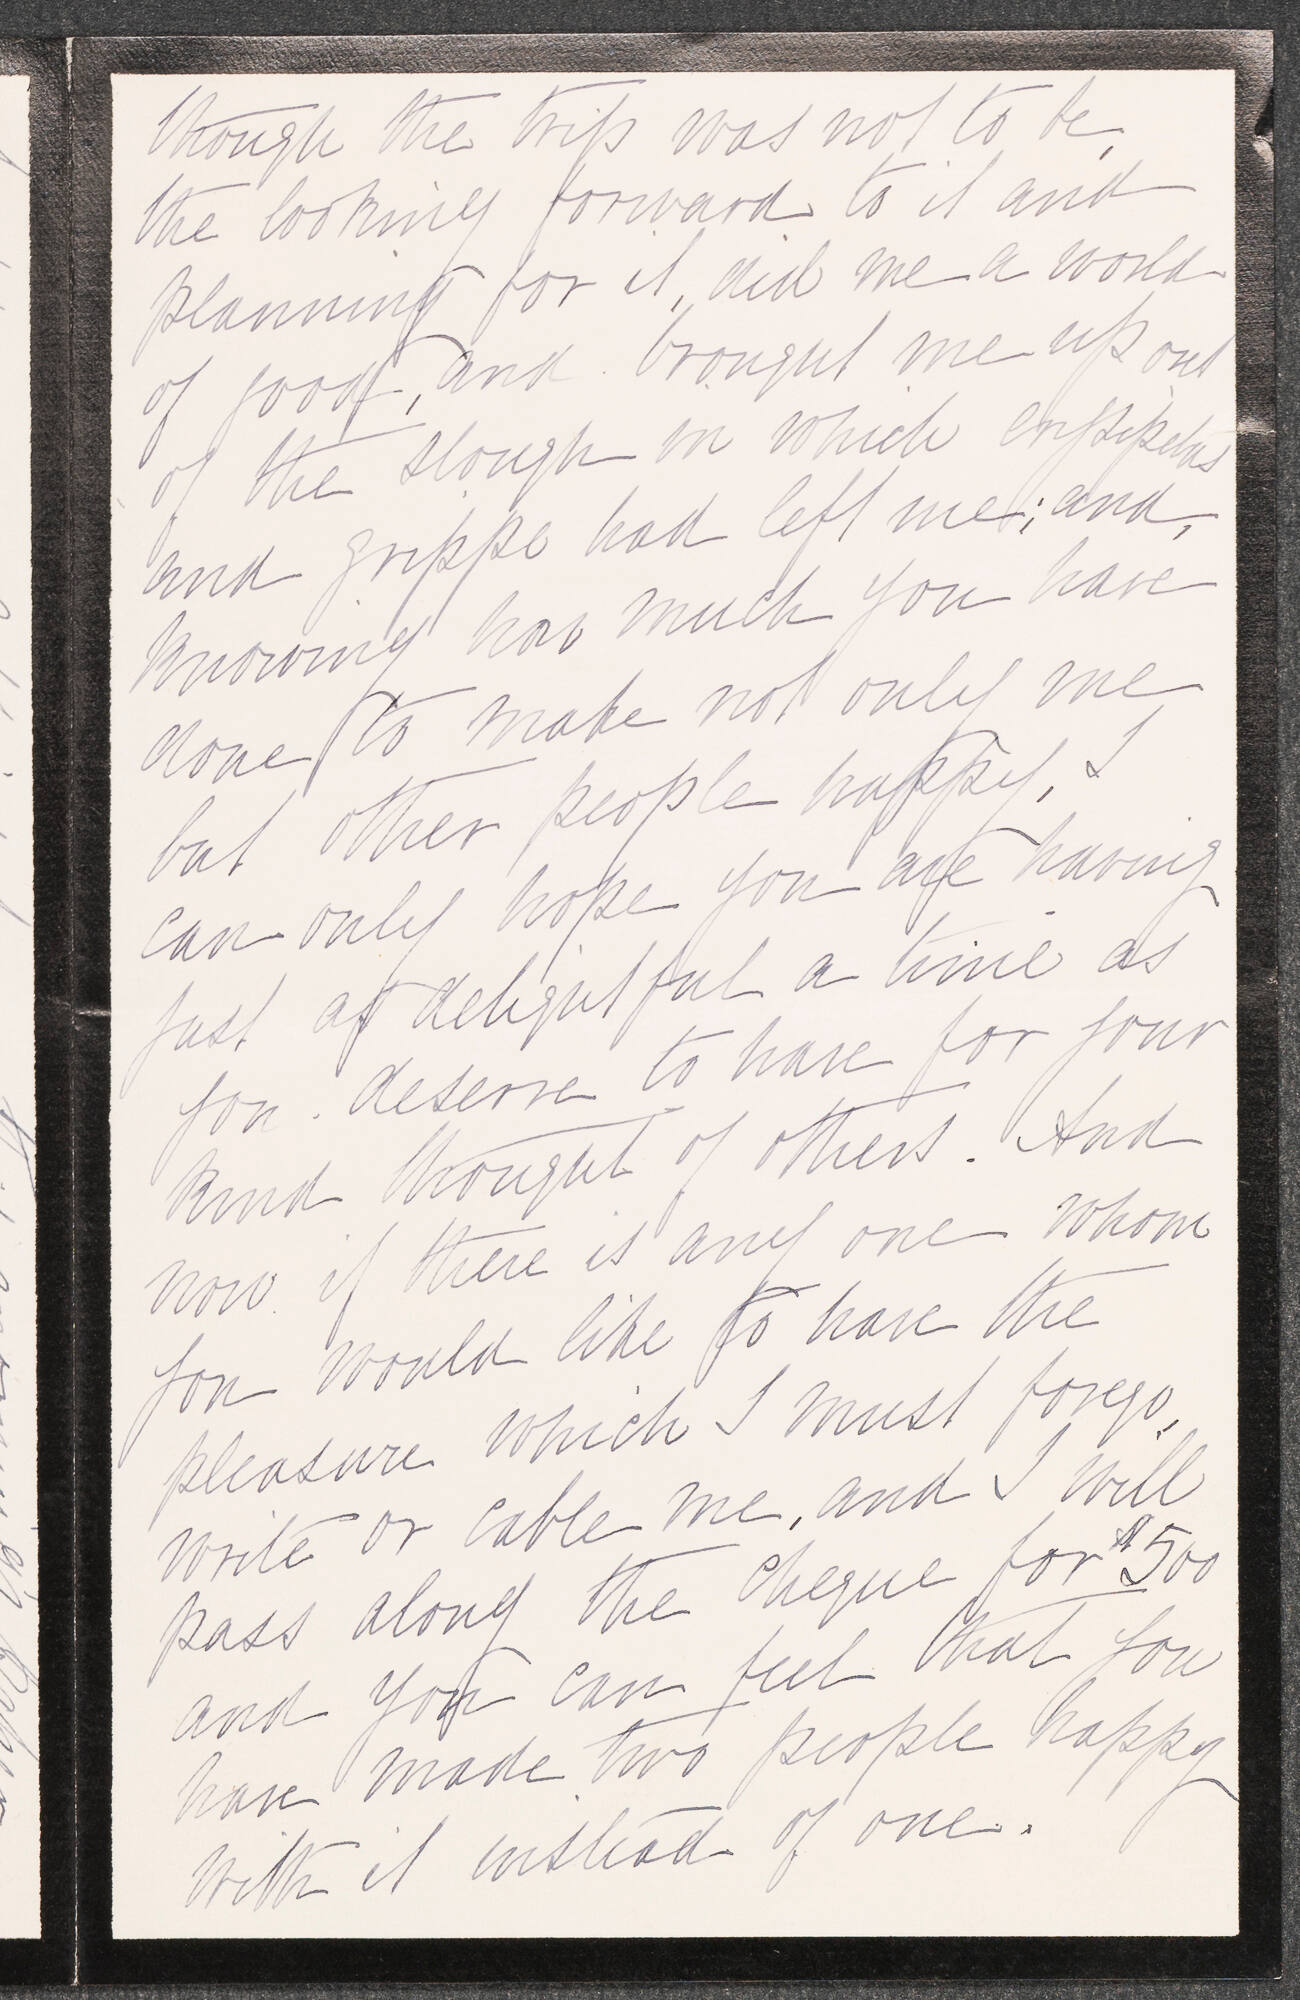 though the trip was not to be,
the looking forward to it and
planning for it, did me a world
of good, and brought me up out
of the slough in which erysipelas
and grippe had left me; and,
knowing how much you have
done to make not only me
but other people happy, I
can only hope you are having
just as delightful a time as
you deserve to have for your
kind thought of others. And
now if there is any one whom
you would like to have the
pleasure which I must forego,
write or cable me, and I will
pass along the cheque for $500
and you can feel that you
have made two people happy
with it instead of one.